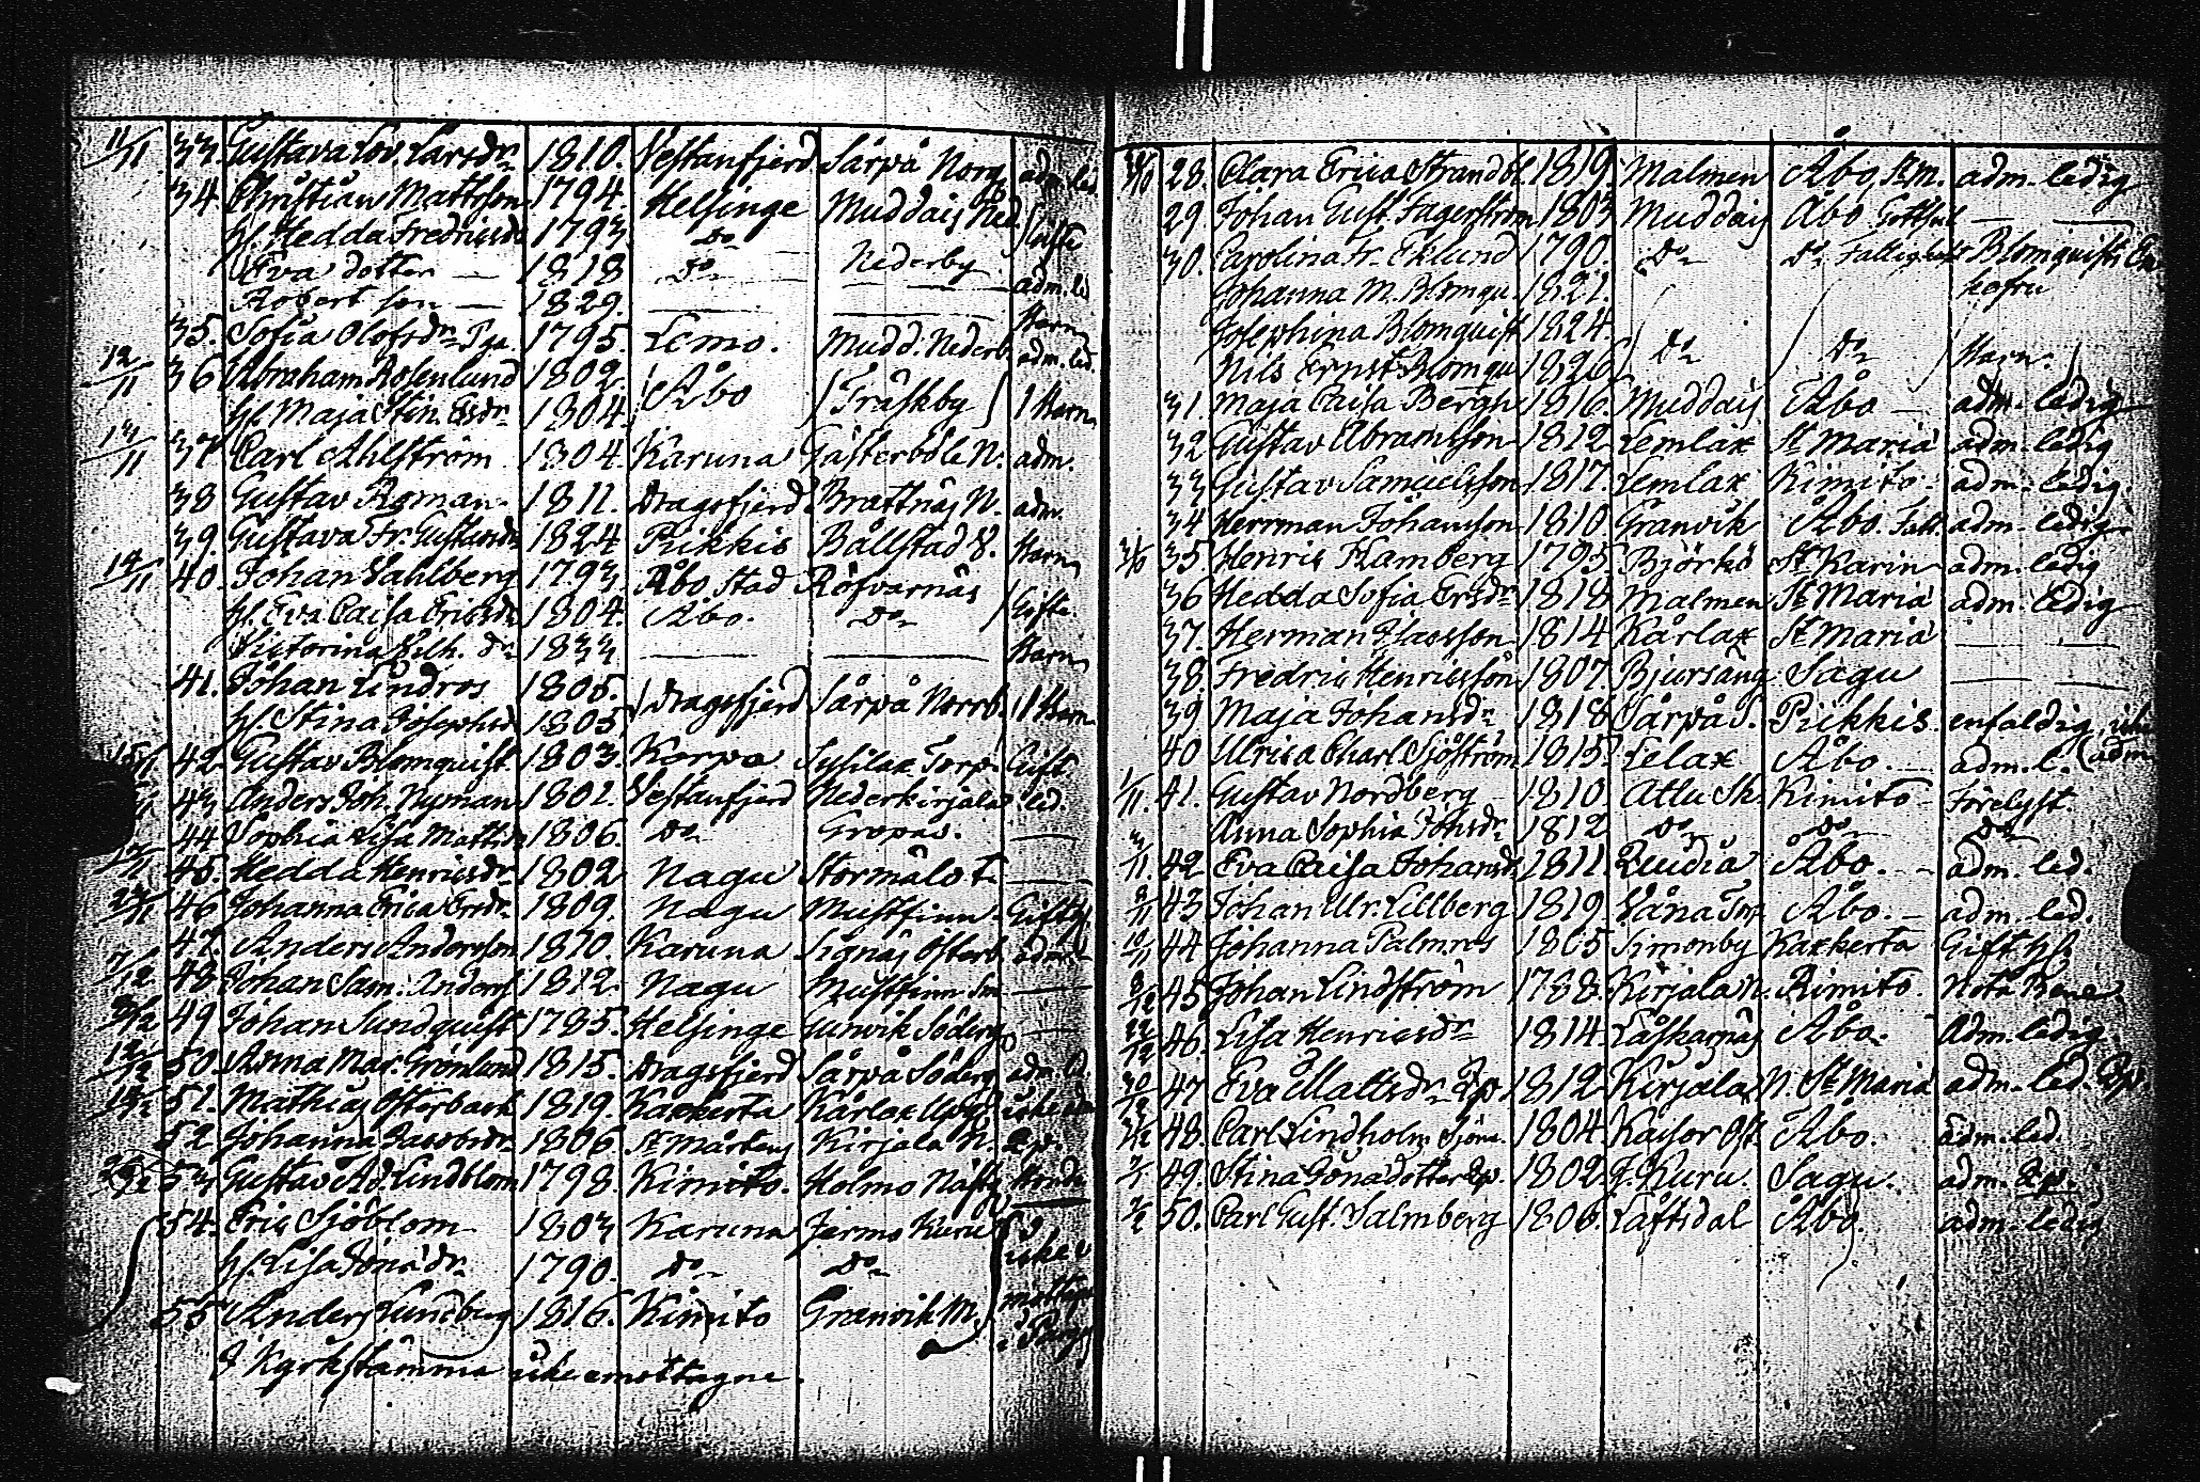 11/11 33. Gustava Lov. Larsdr 1810. Vestanfjerd Särpå Norrg adm. led.
34. Christian Mattsson 1794. Helsinge Muddais Ned. Gifte
h. Hedda Fredricsdr 1793 Do
Eva dotter — 1818 Do — Nederby adm. led
Robert son — 1829. — — Barn
35. Sofia Olofsdr Pga 1795. Lemo. Mudd. Nederb. adm. led.
12/11 36 Abraham Rosenlund 1802. Åbo Tråskby 1 Barn
h. Maja Stin. Ersdr 1804.
13/11 37 Carl Ahlström 1804. Karuna Gästerböle N. adm.
38 Gustav Roman 1811. Dragsfjerd Brattnäs N. adm.
39. Gustava Fr. Gustavsdr 1824 Pikkis Bållstad S. Barn
14/11 40. Johan Sahlberg 1793 Åbo Stad Röfvarnäs
h. Eva Caisa Ericsdr 1804. Åbo. Do Gifte.
Victorina Vilh. Dr 1833 — — Barn
41. Johan Lindros 1805. Dragsfjerd Särpå Norrb. 1 Barn
h. Stina Josephsd 1805
15/11 42 Gustav Blomquist 1803. Korpo Sysilax Torp. Gift.
43 Anders Joh. Nyman 1801. Vestanfjerd Nederkirjala led.
44 Sophia Lisa Mattsdr 1806. Do Gropas. —
45. Hedda Henricsdr 1802 Nagu Stormälo —
46 Johanna Erica Ersdr 1809. Nagu Mustfinn. Gift
47. Anders Andersson 1810. Karuna Signäs Österb. adm.
7/12 48 Johan Sam. Anders 1812. Nagu Mustfinn —
49 Johan Sundquist 1785. Helsinge Gunvik Söderg —
12/12 50. Anna Mar. Grönlund 1815. Dragsfjerd Särpå Söderg adm. l.
51. Mathias Österback 1819. Kakkerta Kårlax icke
52 Johanna Jacobsdr 1806 St Mårtens Kirjala N.
53 Gustav Ad. Lindblom 1798. Kimito. Holmo
54. Eric Sjöblom 1803 Karuna Jermo Kuru icke
h. Lisa Jonsdr 1790. Do Do
55 Anders Lundberg 1816. Kimito Granvik M. mottagn i Pargs
I Kyrkstämma icke emottagne.
28. Clara Erica Strandbl. 1819. Malmen Åbo adm. ledig
29. Johan Gust. Fagerström 1803 Muddais Åbo — —
30. Carolina Fr. Eklund 1790. Do Do Fattighus Blomquists En
kefru
Johanna M. Blomqu. 1821.
Josephina Blomquist 1824. Do Do Barn.
Nils Ernst Blomqu 1826
31. Maja Caisa Bergh 1816. Muddais Åbo — adm. ledig
32 Gustav Abramsson 1812 Lemlax St Maria adm. ledig
33 Gustav Samuelsson 1817. Lemlax Kimito adm. ledig.
34 Herrman Johansson 1810 Granvik Åbo. adm. ledig
35 Henric Hamberg 1795 Björkö St Karin adm. ledig
36 Hedda Sofia Ersdr 1818 Malmen St Maria adm. ledig
37. Herman Classon 1814 Kårlax St Maria — —
38 Fredric Henricsson 1807. Bjursäng Sagu — —
39 Maja Johansdr 1818 Särpå S. Pikkis. enfaldig, icke
adm.
40 Ulrica Charl. Sjöström 1815. Lelax Åbo. adm. l.
1/11. 41. Gustav Nordberg 1810 Attu Kimito Förelyst.
Anna Sophia Johsdr 1812 Do Do Do
42 Eva Caisa Johansdr 1811. Åbo. adm. led.
43 Johan Ulr. Lillberg 1819 Våna Torp Åbo. — adm. led.
44 Johanna Palmros 1805 Simonby Kakkerta Gift
8/12 45 Johan Lindström 1788 Kirjala N. Kimito. Nota Bene.
22/12 46. Lisa Henricsdr 1814. Låskarnäs Åbo. adm. ledig
30/12 47 Eva Mattsdr 1812 Kirjala N. St Maria adm. led.
48. Carl Lindholm Sjöm. 1804. Kaisor Öst. Åbo. adm. led.
49. Stina Jonædotter 1802. Kuru. Sagu. adm.
50. Carl Gust. Salmberg 1806. Låftsdal Åbo. adm. ledig